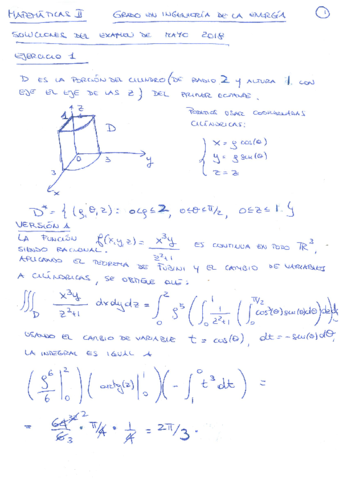 MATEMÁTICAS II GRADO EN INGENIERÍA DE LA ENERGÍA 1
SOLUCIONES DEL EXAMEN DE MAYO 2018
EJERCICIO 1
D ES LA PORCIÓN DEL CILINDRO (DE RADIO 2 Y ALTURA 1. CON
EJE EL EJE DE LAS Z) DEL PRIMER OCTANTE.
PODEMOS USAR COORDENADAS
CILÍNDRICAS:
x = ρ cos(θ)
y = ρ sen(θ)
z = z
z
1
D
0
3
y
3
x
D* = {(ρ, θ, z): 0≤ρ≤2, 0≤θ≤π/2, 0≤z≤1.}
VERSIÓN A
LA FUNCIÓN f(x,y,z) = x³y/(z²+1) ES CONTINUA EN TODO ℝ³,
SIENDO RACIONAL.
APLICANDO EL TEOREMA DE FUBINI Y EL CAMBIO DE VARIABLES
A CILÍNDRICAS, SE OBTIENE QUE:
∭_D x³y/(z²+1) dxdydz = ∫₀² ρ⁵ (∫₀¹ 1/(z²+1) (∫₀^{π/2} cos³(θ)sen(θ)dθ)dz)dρ
USANDO EL CAMBIO DE VARIABLE t = cos(θ), dt = -sen(θ)dθ
LA INTEGRAL ES IGUAL A
(ρ⁶/6 |₀²) (arctg(z) |₀¹) (-∫₁⁰ t³ dt) =
= 64/6 · π/4 · 1/4 = 2π/3 .